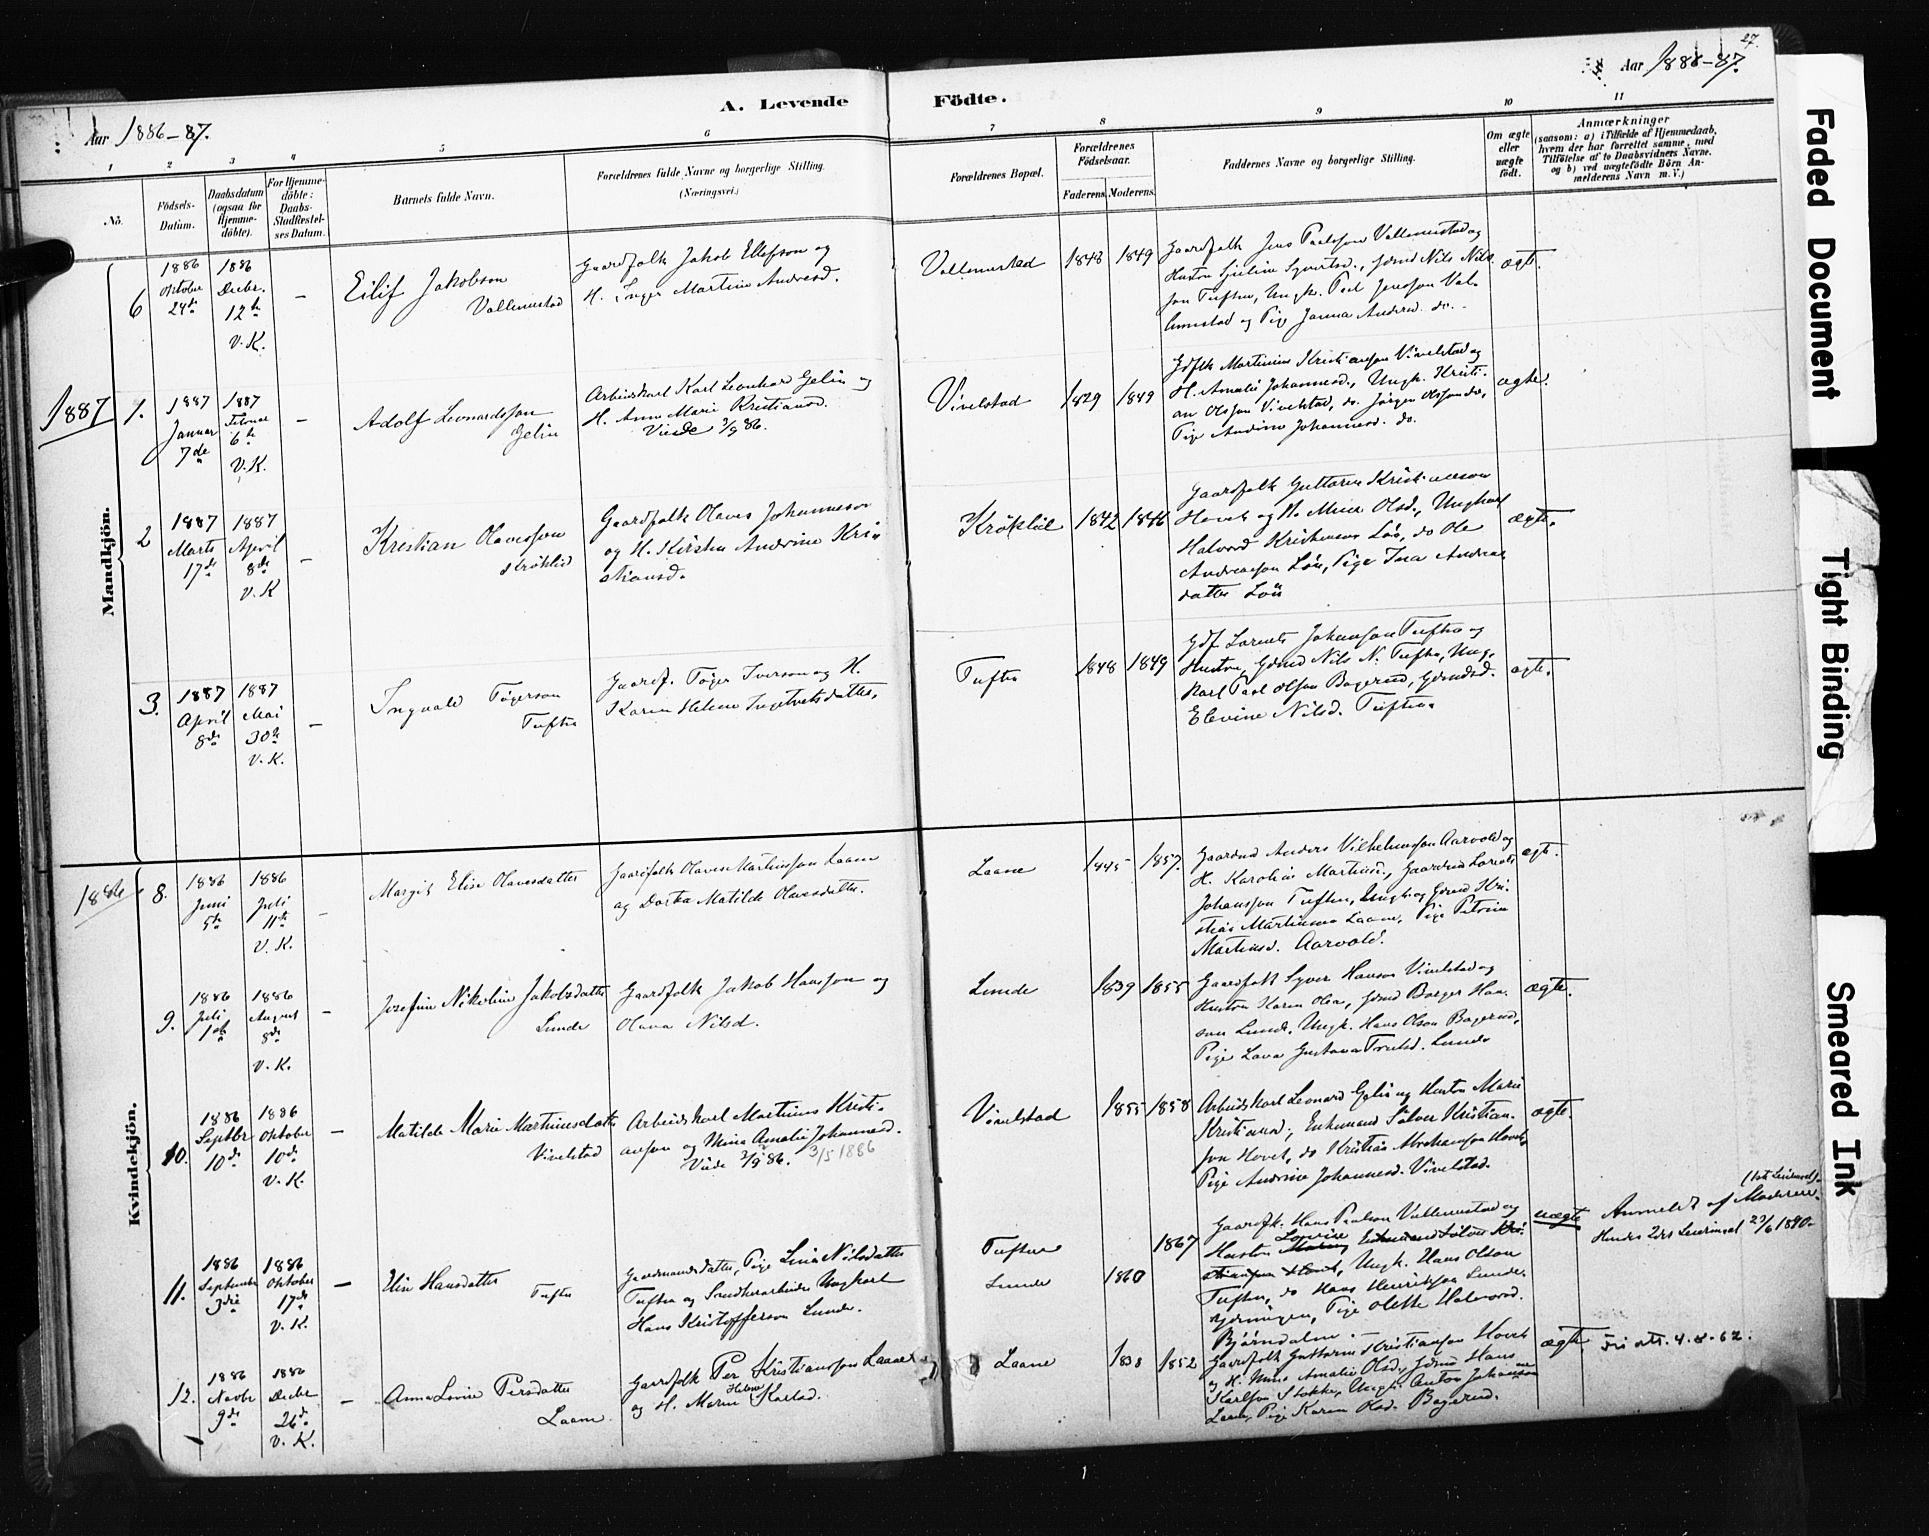 27.
Aar 1886-87.
A. Levende Födte.
Aar 1886-87.
1 2 3 4 5 6 7 8 9 10 11
Nö.
Födsels-
Datum.
Daabsdatum
(ogsaa för
Hjemme-
döbte).
For Hjemme-
döbte:
Daabs-
Stadfæstel-
ses Datum.
Barnets fulde Navn.
Forældrenes fulde Navne og borgerlige Stilling.
(Næringsvei.)
Forældrenes Bopæl.
Forældrenes
Födselsaar.
Faderens. Moderens.
Faddernes Navne og borgerlige Stilling.
Om ægte
eller
uægte
födt.
Anmærkninger
(saasom: a) i Tilfælde af Hjemmedaab,
hvem der har forrettet samme, med
Tilföielse af to Daabsvidners Navne.
og b) ved uægtefödte Börn An-
melderens Navn m. V.)
Mandkjön.
6
1886
Oktober
24de
1886
Decbr.
12te
V. K.
-
Eilif Jakobson
Vallemestad
Gaardfolk Jakob Ellefson og
H. Inger Martine Andersd.
Vallemestad
1843 1849
Gaardfolk Jens Paulsson Vallemestad og
Hustru Syvertsd., Gdmd Nils Nils-
son Tufthe, Ungk. Paul Jensson Val-
lemestad og Pige Janna Andersd. do.
ægte.
1887
1.
1887
Januar
7de
1887
Februar
6te
V. K.
-
Adolf Leonardsson
Gelin
Arbeidskarl Karl Leonhard Gelin og
H. Anne Marie Kristiansd.
Viede 3/9 86.
Vivelstad
1829 1849
Gdflk Martinius Kristianson Vivelstad og
H. Amalie Johannesd., Ungk. Kristi-
an Olsson Vivelstad, do. Jörgen Olsson do,
Pige Andrine Johannesd. do.
ægte.
2
1887
Marts
17de
1887
April
8de
V. K
-
Kristian Olavesson
Kröklid
Gaardfolk Olaves Johanneson
og H. Kirsten Andrine Kri-
stiansd.
Kröklid
1842 1846
Gaardfolk Guttorm Kristianson
Hovet og H. Olsd., Ungkarl
Halvord Kristenson Löö, do Ole
Andreasson Löö, Pige Ina Andreas
datter Löö
ægte.
3.
1887
April
8de
1887
Mai
30te
V. K.
-
Ingvald Tögerson
Tufthe
Gaardf. Töger Iverson og H.
Karen Helene Ingebretsdatter.
Tufthe
1848 1849
Gdf Lorents Johanson Tufthe og
Hustru, Gdmd Nils N. Tufthe, Ung-
karl Paul Olson Bagerud, Gdmdsd.
Elevine Nilsd. Tufthe.
ægte.
Kvindekjön.
1886
8.
1886
Juni
5te
1886
Juli
11te
V. K.
-
Margit Elise Olavesdatter
Gaardfolk Olaves Martinson Laane
og Dorthea Matilde Olavesdatter.
Laane
1845 1857.
Gaardmd Anders Vilhelmson Aarvold og
H. Karoline Martinsd., Gaardmd Lorents
Johansson Tufthe, Ungk og Gdmd Kri-
stian Martinson Laane, Pige Petrine
Martinsd. Aarvold.
ægte.
9.
1886
Juli
1ste
1886
August
8de
V. K.
-
Josefine Nikoline Jakobsdatter
Lunde
Gaardfolk Jakob Hansson og
Olava Nilsd.
Lunde
1839 1855
Gaardfolk Syver Hanson Vivelstad og
Hustru Karen Olea, Gdmd Borger Han-
son Lunde, Ungk. Hans Olson Bagerud,
Pige Lava Gustava Trulsd. Lunde
ægte.
10.
1886
Septbr
10de
1886
Oktober
10de
V. K.
-
Matilde Marie Martinusdatter
Vivelstad
Arbeidskarl Martinius Kristi-
anson og Mina Amalie Johannesd.
Viede 3/9 86. 3/5 1886
Vivelstad
1855 1858
Arbeidskarl Leonard Gelin og Hustru Marie
Kristiansd., Enkemand Sölver Kristian-
son Hovet, do Kristian Abrahamson Hovet
Pige Andrine Johannesd. Vivelstad.
ægte.
11.
1886
September
3die
1886
Oktober
17de
V. K.
-
Elise Hansdatter
Tufte
Gaardmandsdatter, Pige Lina Nilsdatter
Tufthe og Snedkerarbeider Ungkarl
Hans Kristofferson Lunde.
Tufthe
Lunde
1860
1867
Gaardfk. Hans Paulson Vallemestad og
Hustru Lovise Enkemand Sölver Kri-
stianson Hovet, Ungk. Hans Olson
Tufthe, do Hans Henrikson Lunde-
Pige Olette Halvord.
Bjórndalen.
uægte
(1ste Leiermaal).
Anmeldt af Moderen.
Hendes 2det Leiermaal 23/6 1890-
12.
1886
Novbr
9de
1886
Decbr
26de
V. K.
-
Anna Lovise Persdatter
Laane.
Gaardfolk Per Kristiansson Laane
og H. Maren Helene Karlsd.
Laane
1838 1852
Gaardfolk Guttorm Kristianson Hovet
og H. Mina Amalie Olsd., Gdmd Hans
Karlson Stokke, Ungk. Anton Johannesson
Laane, Pige Karen Olsd. Bagerud.
ægte
att. 4-8-62.
Faded Document
Tight Binding
Smeared Ink